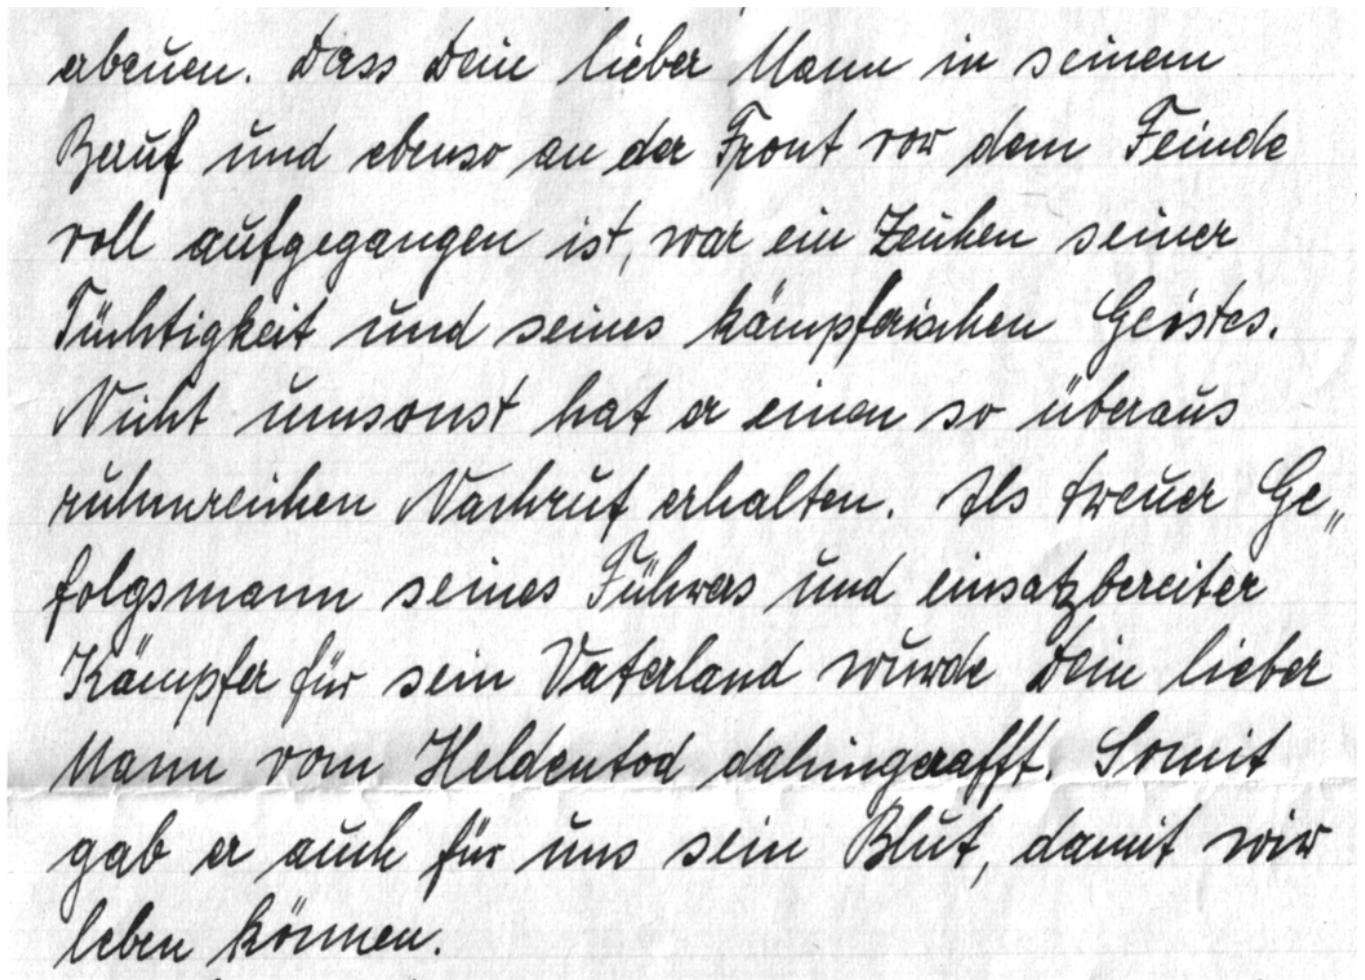 erbauen. Dass Dein lieber Mann in seinem
Beruf und ebenso an der Front vor dem Feinde
voll aufgegangen ist, war ein Zeichen seiner
Tüchtigkeit und seines kämpferischen Geistes.
Nicht umsonst hat er einen so überaus
ruhmreichen Nachruf erhalten. Als treuer Ge„
folgsmann seines Führers und einsatzbereiter
Kämpfer für sein Vaterland wurde Dein lieber
Mann vom Heldentod dahingerafft. Somit
gab er auch für uns sein Blut, damit wir
leben können.